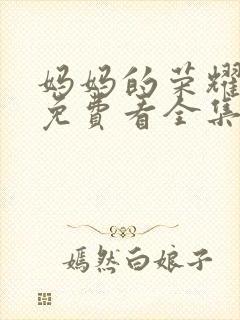 妈妈的荣耀
免费看全集
嫣然白娘子